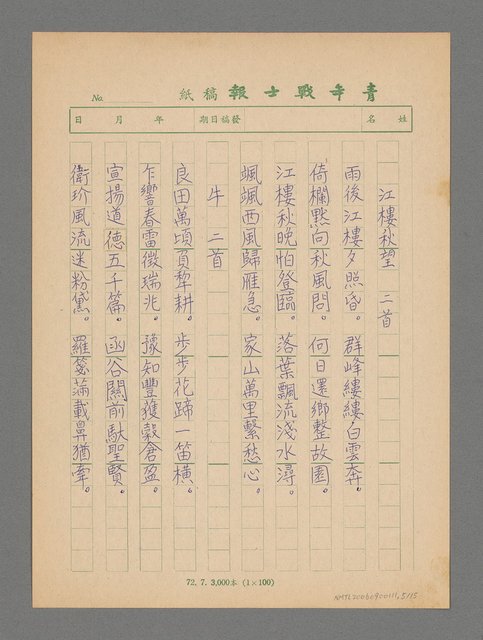 青年戰士報稿紙
No.
姓名
發稿日期
年 月 日
江樓秋望 二首
雨後江樓夕照昏。群峰縷縷白雲奔。
倚欄默向秋風問。何日還鄉整故園。
江樓秋晚怕登臨。落葉飄流淺水潯。
颯颯西風歸雁急。家山萬里繫愁心。
牛 二首
良田萬頃負犂耕。步步花蹄一笛橫。
乍響春雷徵瑞兆。豫知豐獲穀倉盈。
宣揚道德五千篇。函谷關前馱聖賢。
衛玠風流迷粉黛。羅箋滿載鼻猶牽。
72. 7. 3,000本 (1×100)
NMTL20060900111.5/15